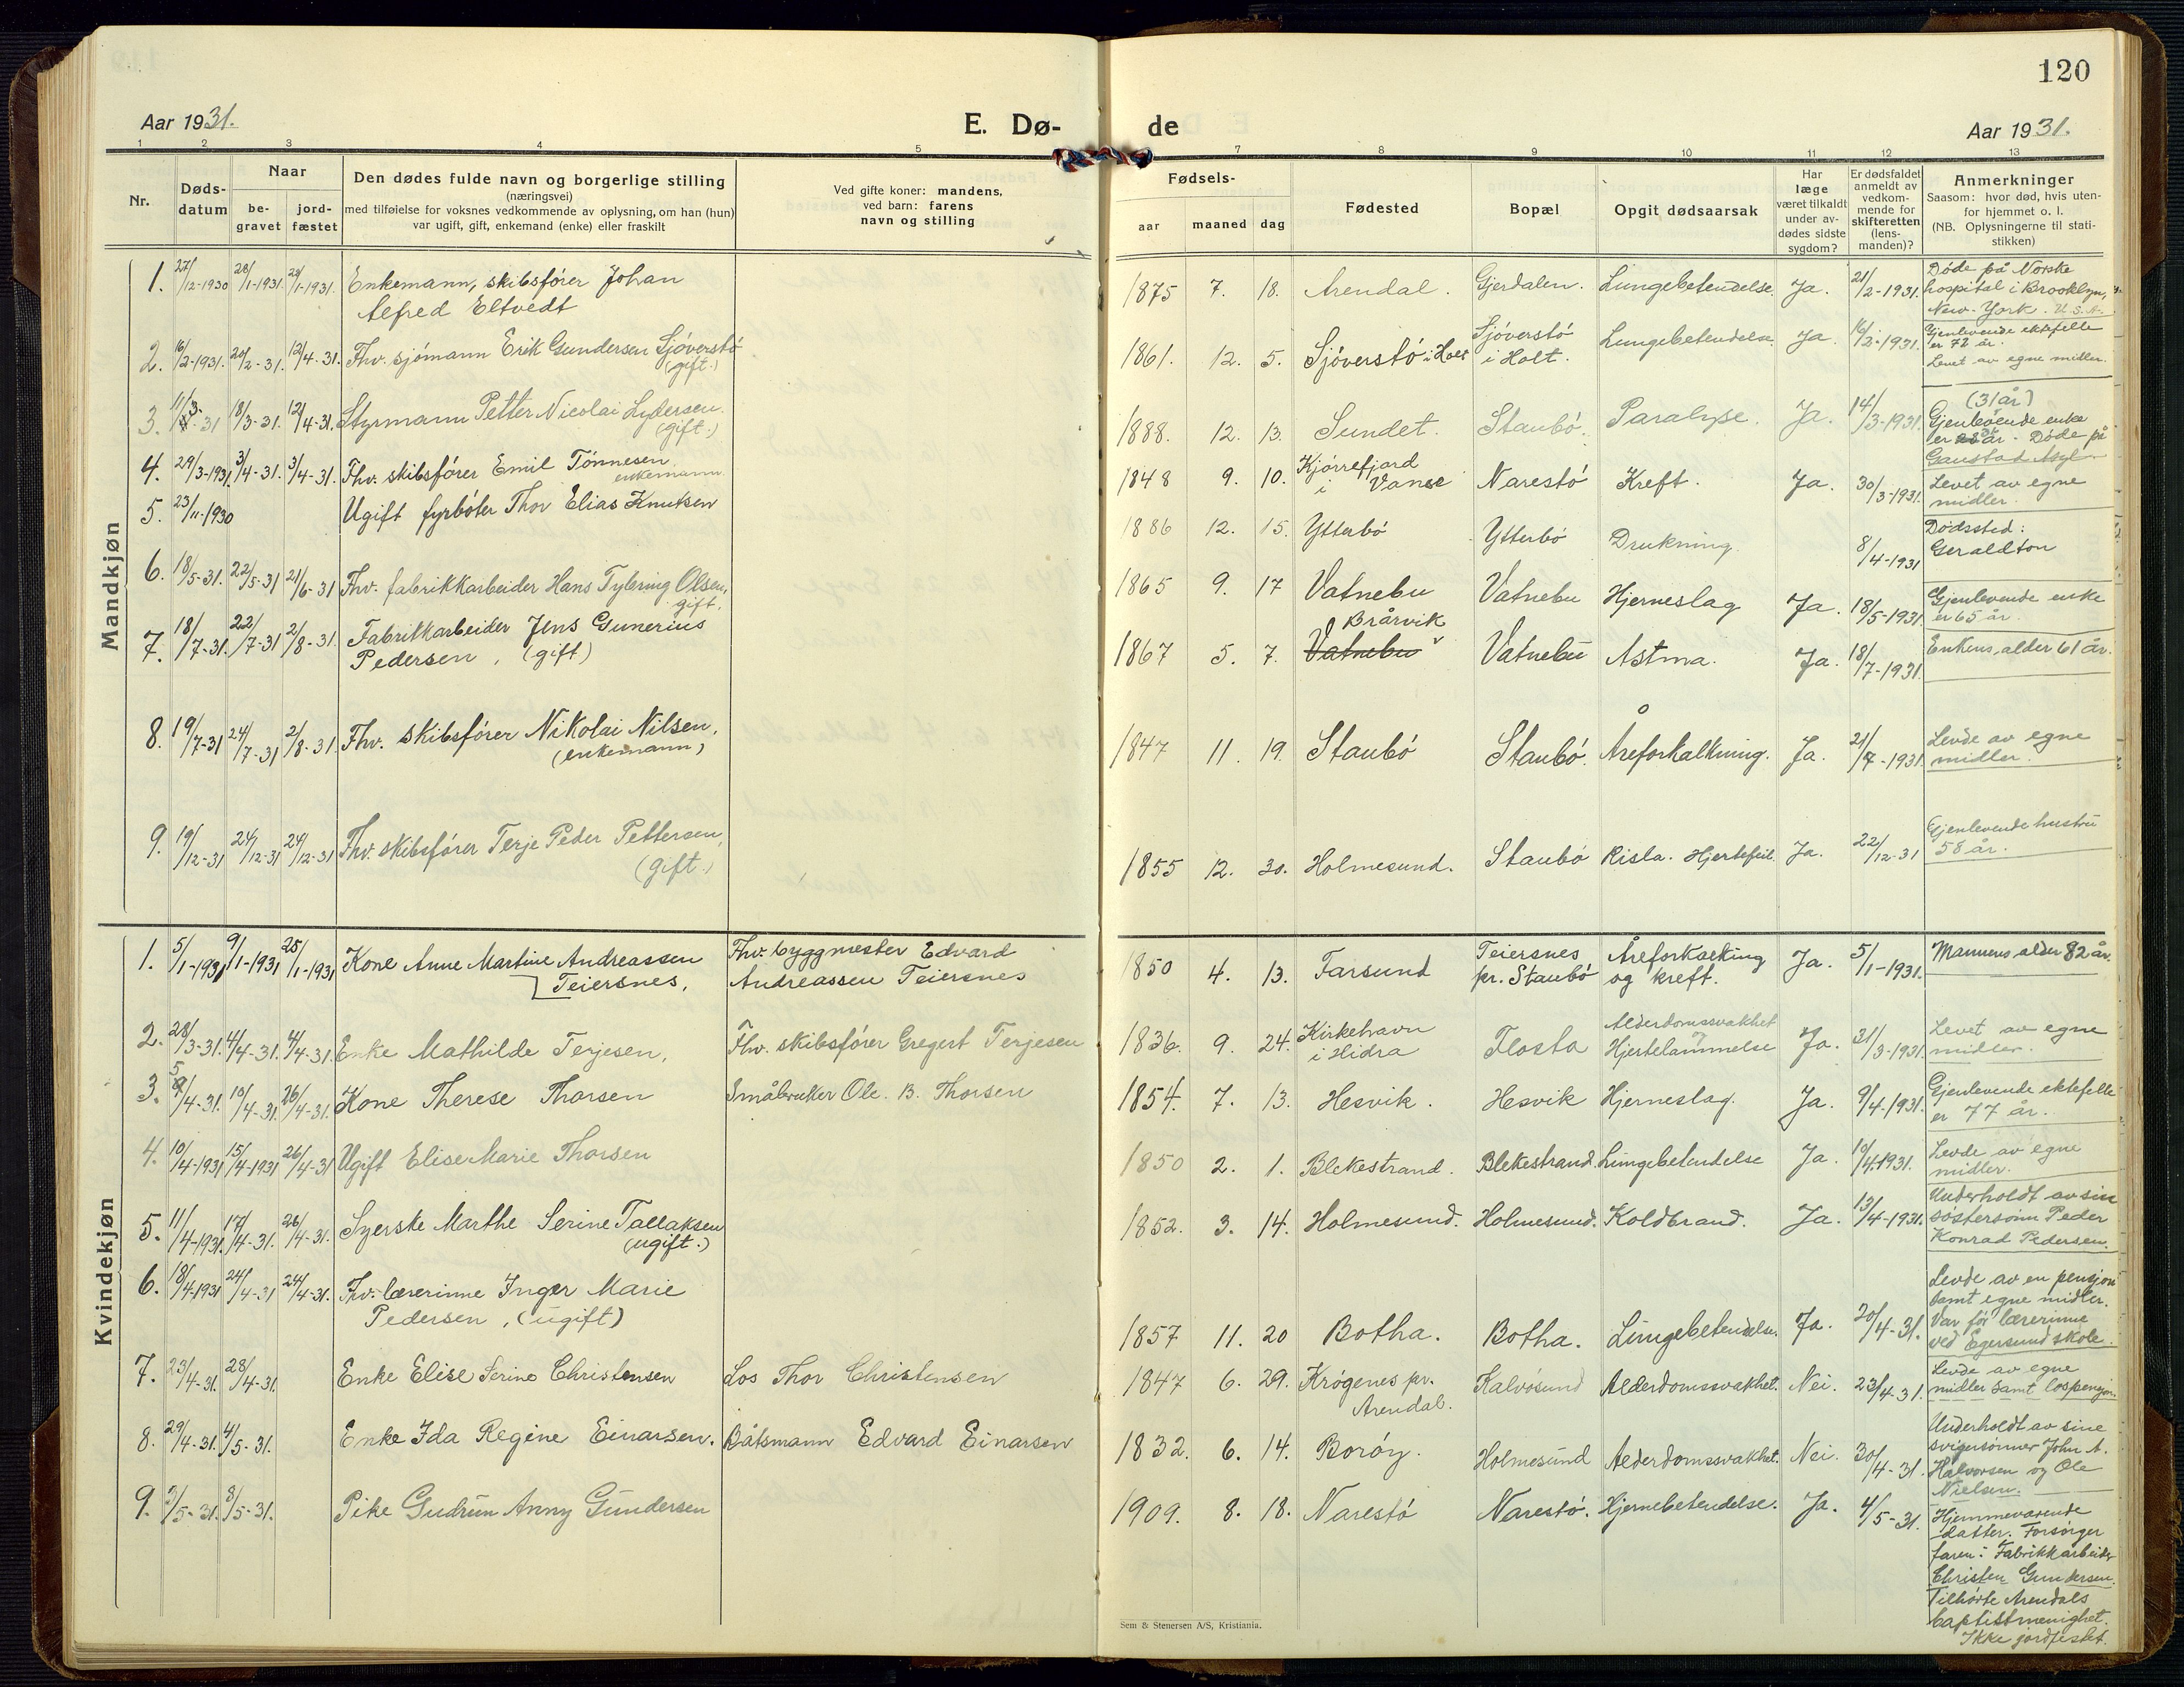 120
Aar 1931.
E. Dø-
de
Aar 1931.
1 2 3 4 5 7 8 9 10 11 12 13
Nr.
Døds-
datum
Naar
be-
gravet
jord-
fæstet
Den dødes fulde navn og borgerlige stilling
(næringsvei)
med tilføielse for voksnes vedkommende av oplysning, om han (hun)
var ugift, gift, enkemand (enke) eller fraskilt
Ved gifte koner: mandens,
ved barn: farens
navn og stilling
Fødsels-
aar maaned dag
Fødested
Bopæl
Opgit dødsaarsak
Har
læge
været tilkaldt
under av-
dødes sidste
sygdom?
Er dødsfaldet
anmeldt av
vedkom-
mende for
skifteretten
(lens-
manden)?
Anmerkninger
Saasom: hvor død, hvis uten-
for hjemmet o. l.
(NB. Oplysningerne til stati-
stikken)
Mandkjøn
1. 27/12-1930 28/1-1931. 28/1-1931. Enkemann, skibsfører Johan
Alfred Eltvedt
1875 7. 18. Arendal. Gjerdalen. Lungebetendelse. Ja. 21/2-1931.
Døde på Norske
hospital i Brooklyn,
New-York. U.S.A.
2. 16/2-1931. 20/2-31. 12/4-31. Fhv. sjømann Erik Gundersen Sjøverstø
(gift.)
1861. 12. 5. Sjøverstø i Holt
Sjøverstø
i Holt.
Lungebetendelse Ja. 16/2-1931.
Gjenlevende ektefelle
er 72 år.
Levet av egne midler.
3. 11/3-31 18/3-31. 12/4-31. Styrmann Petter Nicolai Lydersen.
(gift.)
1888. 12. 13. Sundet. Staubø. Paralyse. Ja. 14/3-1931.
(31 år)
Gjenlevende enke
er år. Døde på
Gaustad Asyl.
4. 29/3-1931. 3/4-31. 3/4-31. Fhv. skibsfører Emil Tønnesen
enkemann
1848 9. 10. Kjørrefjord
i Vanse
Narestø Kreft. Ja. 30/3-1931.
Levet av egne
midler.
5. 23/11-1930 Ugift fyrbøter Thor Elias Knutsen
1886 12. 15. Ytterbø Ytterbø Drukning. 8/4-1931
Dødssted:
Geraldton
6. 18/5-31. 22/5-31 21/6-31 Fhv. fabrikkarbeider Hans Tybring Olsen,
gift.
1865 9. 17 Vatnebu Vatnebu Hjerneslag Ja. 18/5-1931.
Gjenlevende enke
er 65 år.
7. 18/7-31. 22/7-31 2/8-31. Fabrikkarbeider Jens Gunerius
Pedersen, (gift)
1867 5. 7. Brårvik
Vatnebu
Vatnebu Astma. Ja. 18/7-1931.
Enkens alder 61 år.
8. 19/7-31 24/7-31 2/8-31. Fhv. skibsfører Nikolai Nilsen,
(enkemann)
1847 11. 19. Staubø Staubø. Åreforkalkning. Ja. 21/7-1931.
Levde av egne
midler.
9. 19/12-31 24/12-31 24/12-31 Fhv. skibsfører Terje Peder Pettersen,
(gift.)
1855 12. 30. Holmesund. Staubø Risla. Hjertefeil. Ja. 22/12-31
Gjenlevende hustru
58 år.
Kvindekjøn
1. 5/1-1931 9/1-1931 25/1-1931 Kone Anne Martine Andreassen
Teiersnes,
Fhv. byggmester Edvard
Andreassen Teiersnes
1850 4. 13. Farsund
Teiersnes
pr. Staubø
Åreforkalking
og kreft.
Ja. 5/1-1931.
Mannens alder 82 år.
2. 28/3-31. 4/4-31. 4/4-31. Enke Mathilde Terjesen,
Fhv. skibsfører Gregert Terjesen
1836. 9. 24. Kirkehavn
i Hidra
Flosta
Alderdomssvakhet
Hjertelammelse
Ja. 31/3-1931.
Levet av egne
midler.
3. /4-31. 10/4-31. 26/4-31. Kone Therese Thorsen
Småbruker Ole. B. Thorsen
1854. 7. 13. Hesvik. Hesvik Hjerneslag. Ja. 9/4-1931.
Gjenlevende ektefelle
er 77 år.
4. 10/4-1931 15/4-1931 26/4-31 Ugift Elise Marie Thorsen
1850 2. 1. Blekestrand. Blekestrand. Lungebetendelse Ja. 10/4-1931.
Levde av egne
midler.
5. 11/4-1931. 17/4-31. 26/4-31. Syerske Marthe Serine Tallaksen
(ugift.)
1852. 3. 14. Holmesund. Holmesund. Koldbrand. Ja. 13/4-1931.
Underholdt av sin
søstersønn Peder
Konrad Pedersen.
6. 18/4-1931 24/4-31 24/4-31. Fhv. lærerinne Inger Marie
Pedersen, (ugift)
1857 11. 20 Botha. Botha. Lungebetendelse. Ja. 20/4-31.
Levde av en pensjon
samt egne midler.
Var før lærerinne
ved Egersund skole.
7. 23/4-31. 28/4-31. Enke Elise Serine Christensen
Los Thor Christensen
1847 6. 29. Krøgenes pr.
Arendal.
Kalvøsund Alderdomssvakhet. Nei. 23/4-31.
Levde av egne
midler samt lospensjon.
8. 29/4-31. 4/5-31. Enke Ida Regine Einarsen.
Båtsmann Edvard Einarsen
1832. 6. 14. Borøy. Holmesund Alderdomssvakhet. Nei. 30/4-31.
Underholdt av sine
svigersønner John A.
Halvorsen og Ole
Nielsen.
9. 3/5-31. 8/5-31. Pike Gudrun Anny Gundersen
1909. 8. 18. Narestø Narestø. Hjernebetendelse. Ja. 4/5-31.
Hjemmeværende
datter. Forsørger
faren: Fabrikkarbeider
Christen Gundersen.
Tilhørte Arendals
baptistmenighet.
Ikke jordfestet.
Sem & Stenersen A/S, Kristiania.